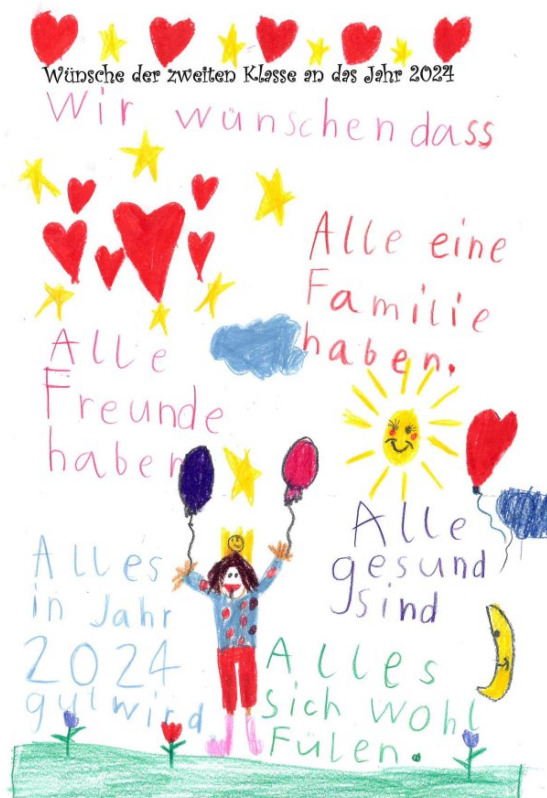 Wünsche der zweiten Klasse an das Jahr 2024
Wir wünschen dass
Alle eine
Familie
haben.
Alle
Freunde
haben
Alle
gesund
sind
Alles
in Jahr
2024
gut wird
Alles
sich wohl
Fülen.